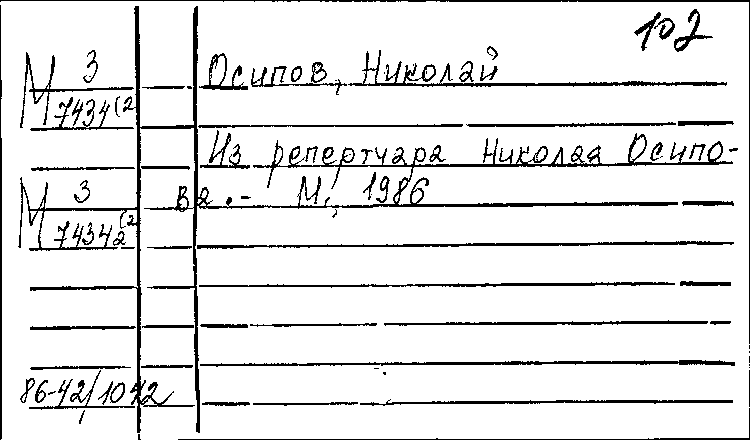 102
М 3
7434(2
Осипов, Николай
Из репертуара Николая Осипо-
ва. - М., 1986
М 3
74342(2
86-42/1042